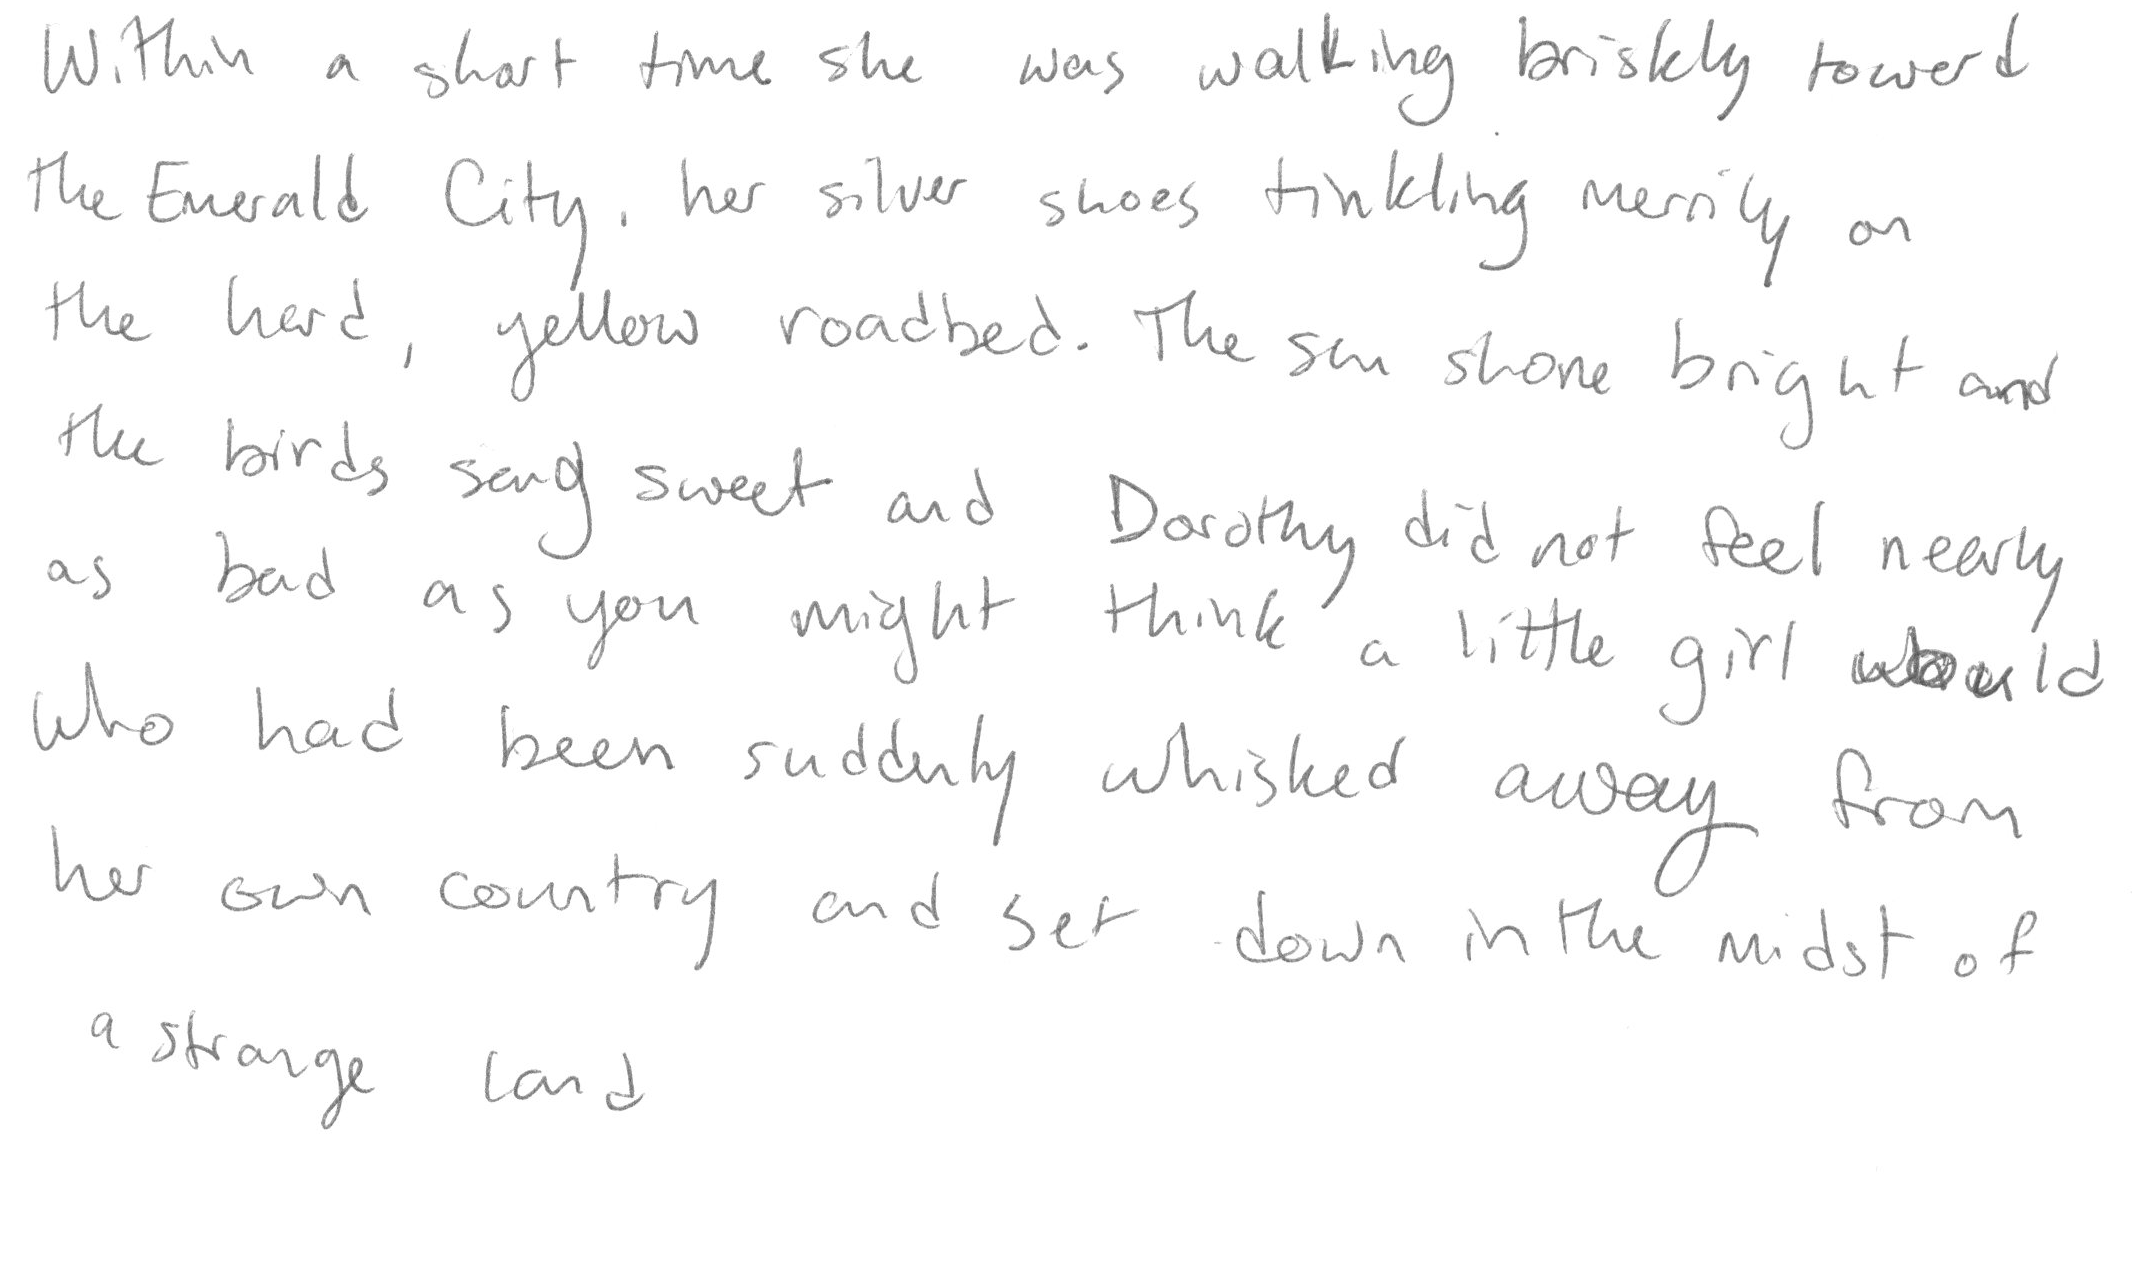 Within a short time she was walking briskly toward
the Emerald City, her silver shoes tinkling merrily on
the hard, yellow roadbed. The sun shone bright and
the birds sang sweet and Dorothy did not feel nearly
as bad as you might think a little girl would
who had been suddenly whisked away from
her own country and set down in the midst of
a strange land